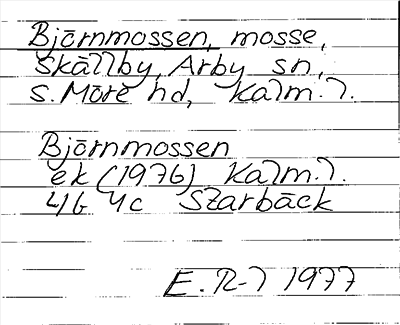 Björnmossen, mosse,
Skällby, Arby sn,
S. Möre hd, Kalm. l.
Björnmossen
ek (1976) Kalm. l.
4G 4c Szarbäck
E. R-l 1977